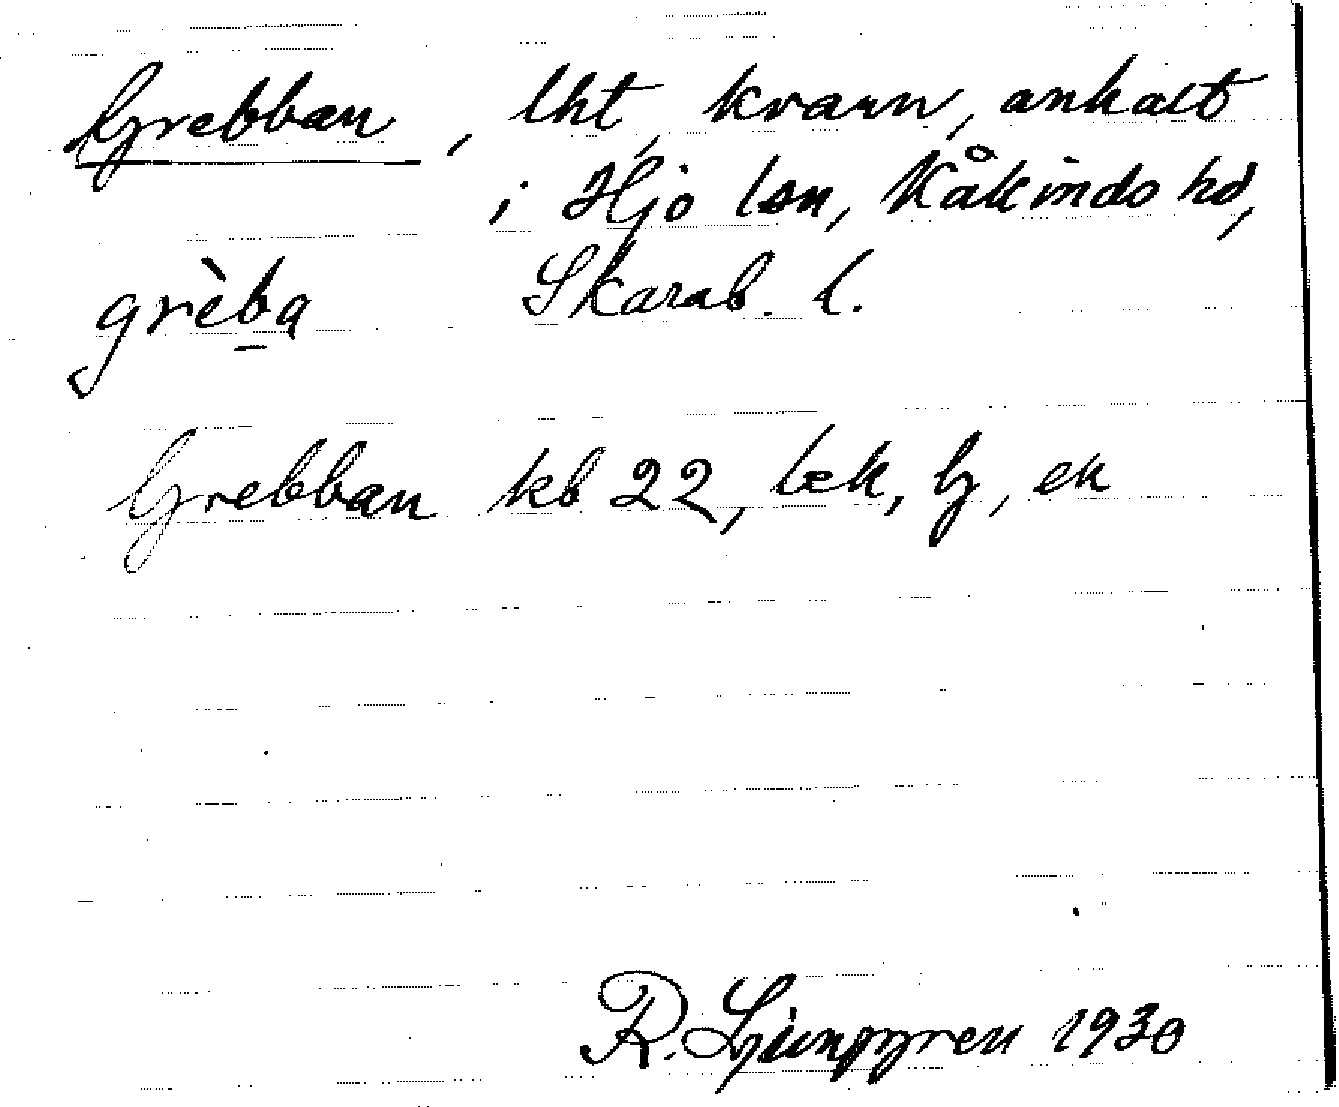 Grebban, lht, kvarn, anhalt
i Hjo lsn, Kåkinds hd,
grèba Skarab. l.
Grebban kb 22, tek, G, ek
R. Ljunggren 1930